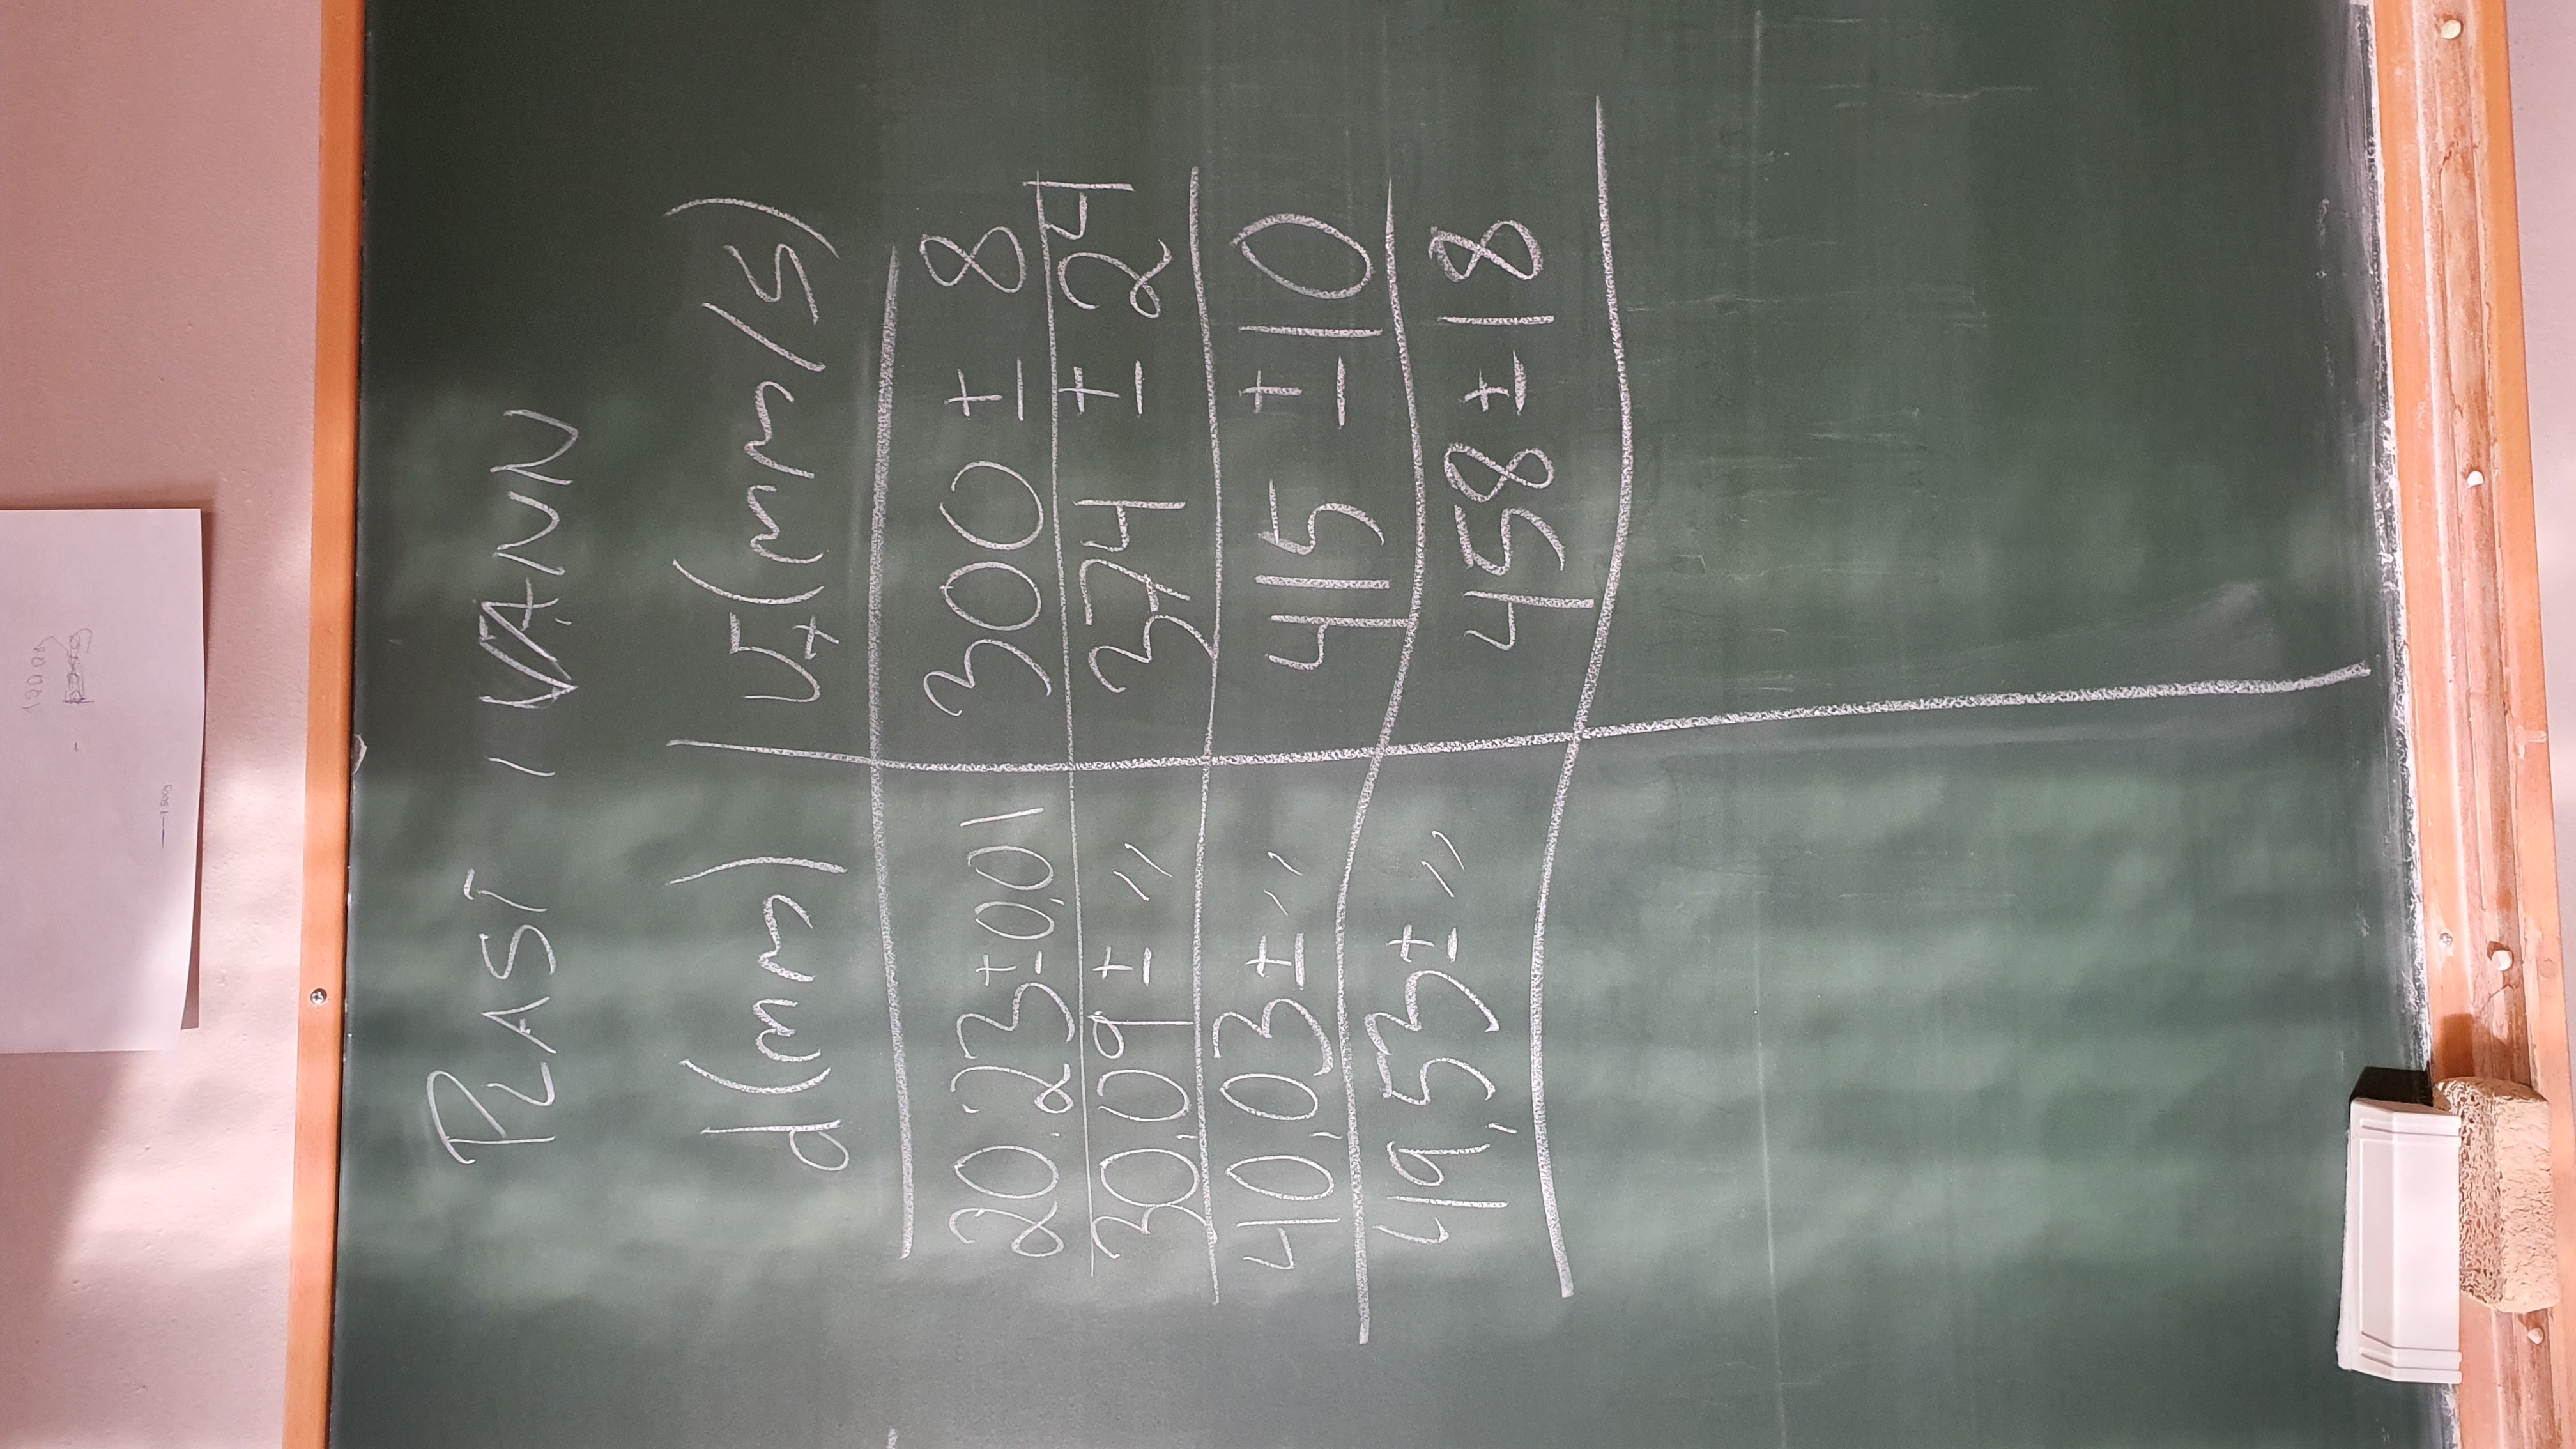 1000g
PLAST I VANN
d(mm) v_t(mm/s)
20.23±0,01 300 ± 8
30,09 ± 〃 374 ± 24
40,03 ± 〃 415 ± 10
49,53 ± 〃 458 ± 18